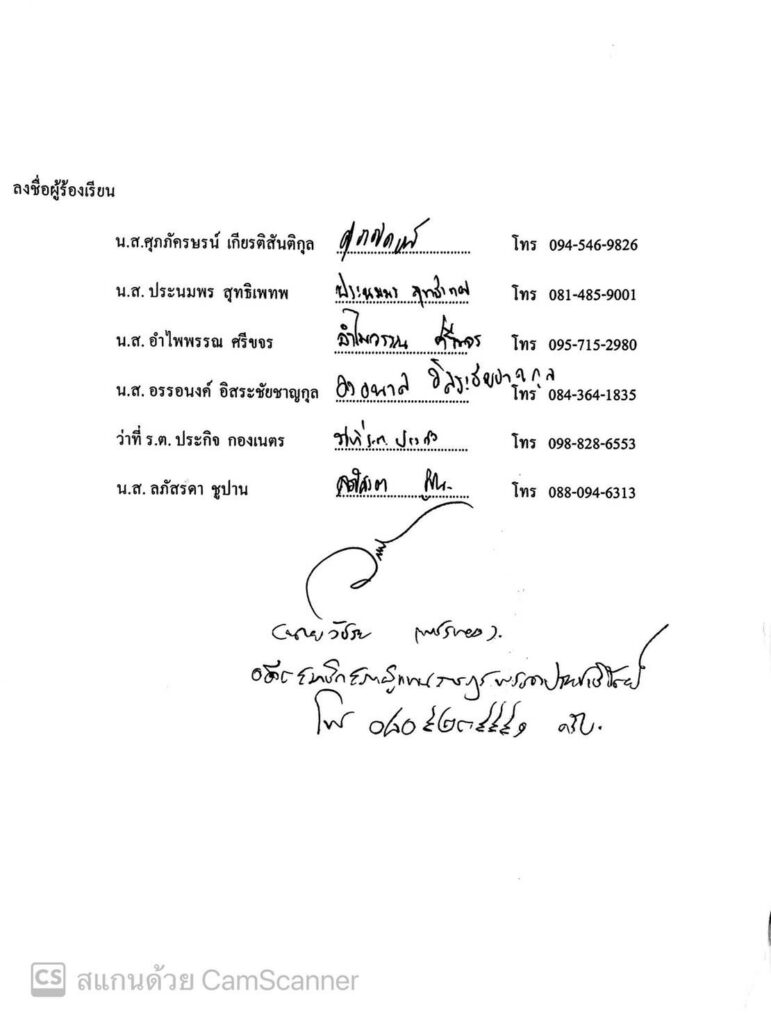 ลงชื่อผู้ร้องเรียน
น.ส.ศุภภัครษรน์ เกียรติสันติกุล โทร 094-546-9826
น.ส. ประนมพร สุทธิเพทพ ประนมพร โทร 081-485-9001
น.ส. อำไพพรรณ ศรีขจร อำไพวรรณ ศรีขจร โทร 095-715-2980
น.ส. อรรอนงค์ อิสระชัยชาญกุล อิสระชัยชาญกุล โทร 084-364-1835
ว่าที่ ร.ต. ประกิจ กองเนตร ว่าที่ ร.ต. ประกิจ โทร 098-828-6553
น.ส. ลภัสรดา ชูปาน โทร 088-094-6313
(นายวัชระ เพชรทอง).
อดีตสมาชิกสภาผู้แทนราษฎร พรรคประชาธิปัตย์
โทร ครับ.
CS สแกนด้วย CamScanner